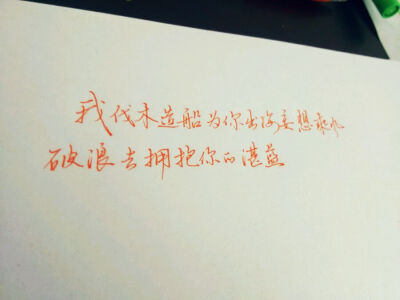 我伐木造船为你出海妄想乘风
破浪去拥抱你的湛蓝